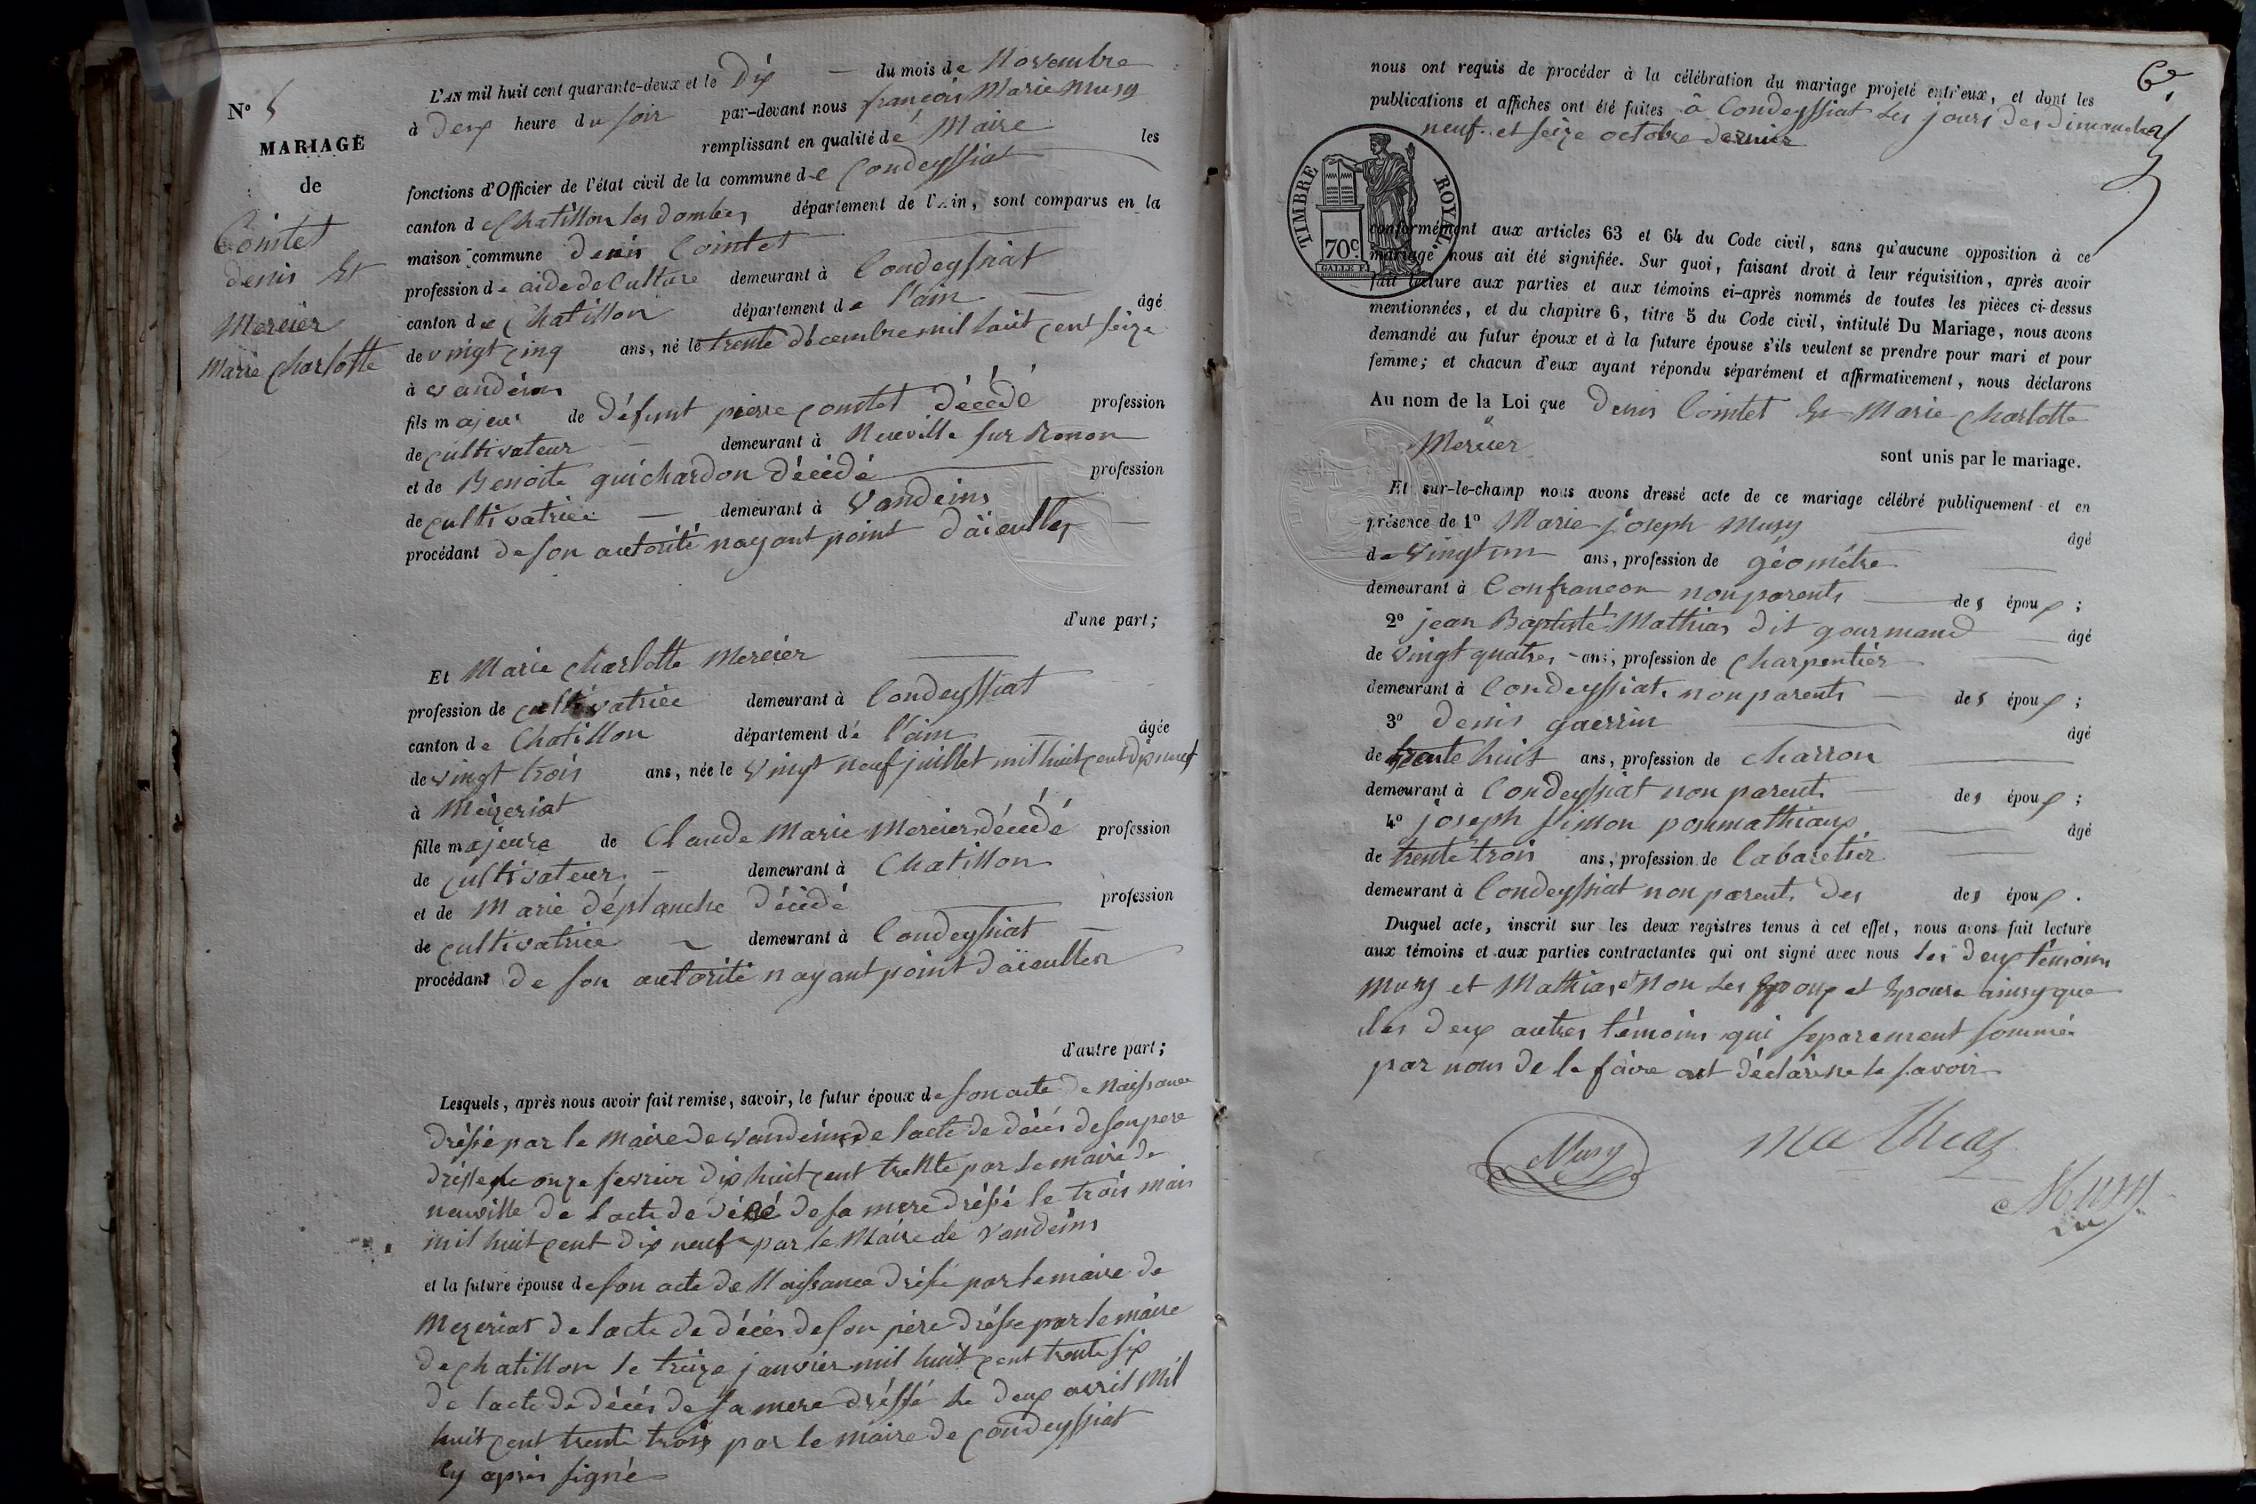 N° 5
MARIAGE
de
Cointet
denis Et
Mercier
Marie Charlotte
L'AN mil huit cent quarante-deux et le Dix du mois de Novembre
à Deux heure du soir par-devant nous françois Marie Musy
remplissant en qualité de Maire les
fonctions d'Officier de l'état civil de la commune de Condeyssiat
canton de Chatillon les dombes département de l'Ain, sont comparus en la
maison commune denis Cointet
profession de aide de Culture demeurant à Condeyssiat
canton de Chatillon département de l'ain âgé
de vingt cinq ans, né le trente décembre mil huit cent seize
à vandeins
fils majeur de Défunt pierre Cointet Décédé profession
de cultivateur demeurant à Neuville sur Renon
et de Benoite guichardon Décédé profession
de cultivatrice demeurant à Vandeins
procédant de son autorité nayant point d'aïeulles
d'une part;
Et Marie Charlotte Mercier
profession de cultivatrice demeurant à Condeyssiat
canton de Chatillon département de l'ain âgée
de vingt trois ans, née le vingt neuf juillet mil huit cent dix neuf
à Mézeriat
fille majeure de Claude Marie Mercier décédé profession
de cultivateur demeurant à Chatillon
et de Marie déplanche Décédé profession
de cultivatrice demeurant à Condeyssiat
procédant de son autorité nayant point daïeulles
d'autre part;
Lesquels, après nous avoir fait remise, savoir, le futur époux de son acte de Naissance
dréssé par le Maire de vandeins, de lacte de décés de son pere
dréssé le onze fevrier dix huit cent trente par le maire de
neuville de lacte de décé de sa mere dréssé le trois mars
mil huit cent dix neuf par le Maire de Vandeins
et la future épouse de son acte de Naissance dréssé par le maire de
Mezeriat de lacte de décés de son père dréssé par le maire
de chatillon le treize janvier mil huit cent trente six
de lacte de décés de sa mere dréssé le deux avril mil
huit cent trente trois par le maire de Condeyssiat
cy après signé
6e
nous ont requis de procéder à la célébration du mariage projeté entr'eux, et dont les
publications et affiches ont été faites à Condeyssiat les jours des dimanches
neuf et seize octobre dernier
TIMBRE ROYAL.
70c.
GALLE F.
conformément aux articles 63 et 64 du Code civil, sans qu'aucune opposition à ce
mariage nous ait été signifiée. Sur quoi, faisant droit à leur réquisition, après avoir
fait lecture aux parties et aux témoins ci-après nommés de toutes les pièces ci-dessus
mentionnées, et du chapitre 6, titre 5 du Code civil, intitulé Du Mariage, nous avons
demandé au futur époux et à la future épouse s'ils veulent se prendre pour mari et pour
femme; et chacun d'eux ayant répondu séparément et affirmativement, nous déclarons
Au nom de la Loi que Denis Cointet Et Marie Charlotte
Mercier
sont unis par le mariage.
Et sur-le-champ nous avons dressé acte de ce mariage célébré publiquement et en
présence de 1° Marie joseph Musy âgé
de vingt un ans, profession de géomètre
demeurant à Confrancon non parents des époux;
2° jean Baptiste Mathias dit gourmand âgé
de vingt quatre ans, profession de charpentier
demeurant à Condeyssiat non parents des époux;
3° denis guerrin âgé
de trente huit ans, profession de charron
demeurant à Condeyssiat non parents des époux;
4° joseph simon ponmathiaux âgé
de trente trois ans, profession de Cabaretier
demeurant à Condeyssiat non parents des des époux.
Duquel acte, inscrit sur les deux registres tenus à cet effet, nous avons fait lecture
aux témoins et aux parties contractantes qui ont signé avec nous les deux témoins
Musy et Mathias et Non les Epoux et Epouse ainsy que
les deux autres témoins qui separement sommé
par nous de le faire ont déclaré ne le savoir
Musy
Mathias
Musy